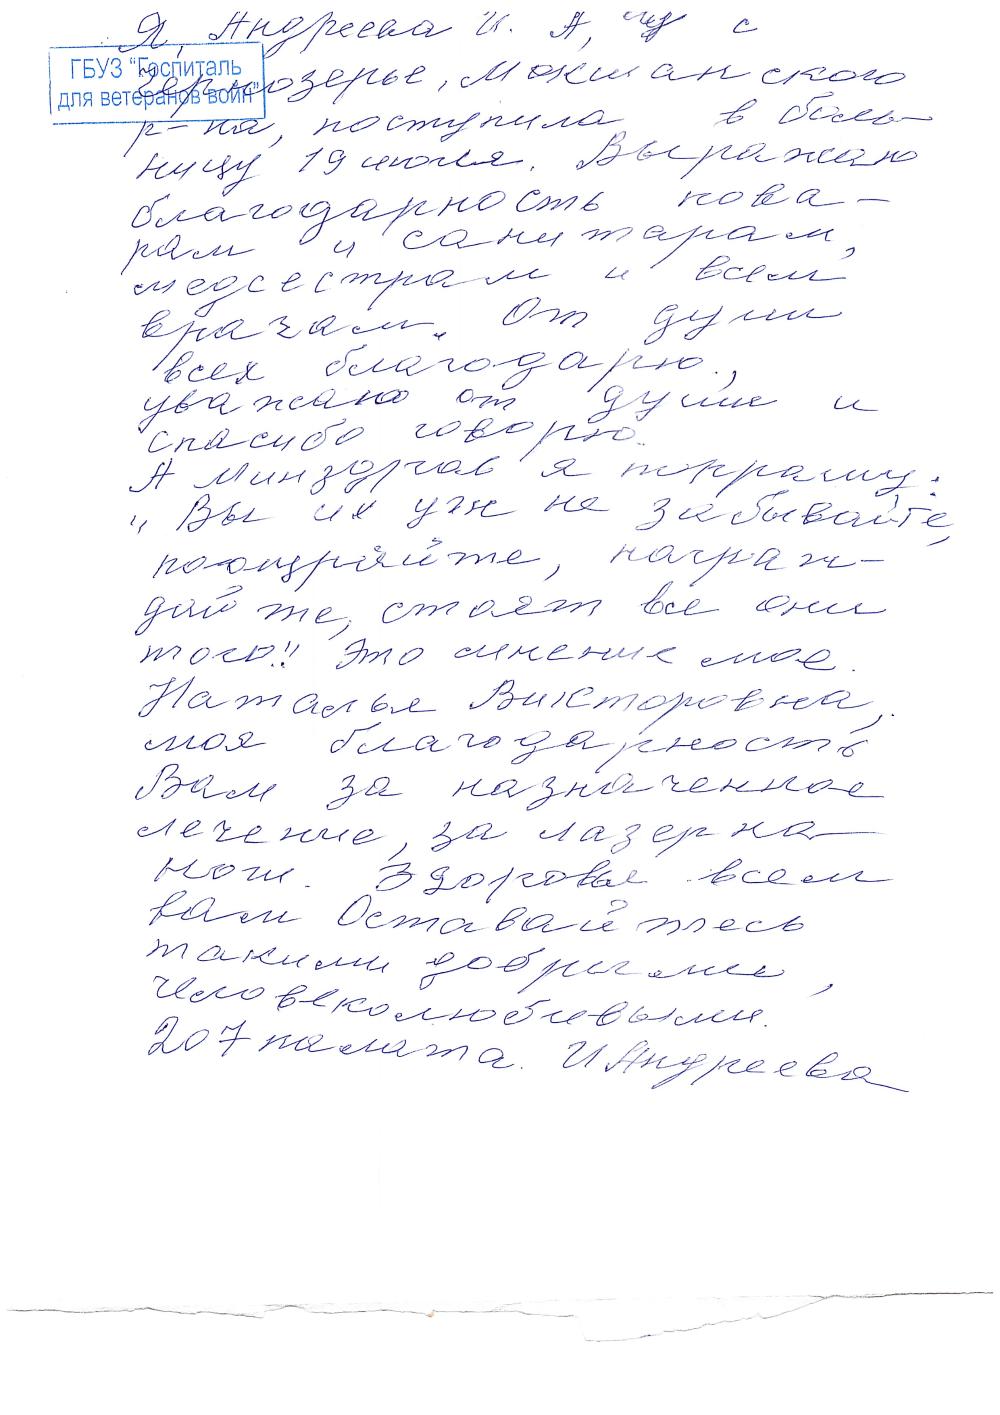 Я, Андреева И. А, из с
ГБУЗ "Госпиталь
для ветеранов войн"
Чернозерье, Мокшанского
р-на, поступила в боль-
ницу 19 июля. Выражаю
благодарность пова-
рам и санитарам,
медсестрам и всем
врачам. От души
всех благодарю,
уважаю от души и
спасибо говорю.
А Минздрав я прошу:
"Вы их уж не забывайте,
поощряйте, награж-
дайте, стоят все они
того!" Это мнение мое.
Наталья Викторовна,
моя благодарность
Вам за назначенное
лечение, за лазер на
ноги. Здоровья всем
вам Оставайтесь
такими добрыми,
человеколюбивыми.
207 палата. И Андреева